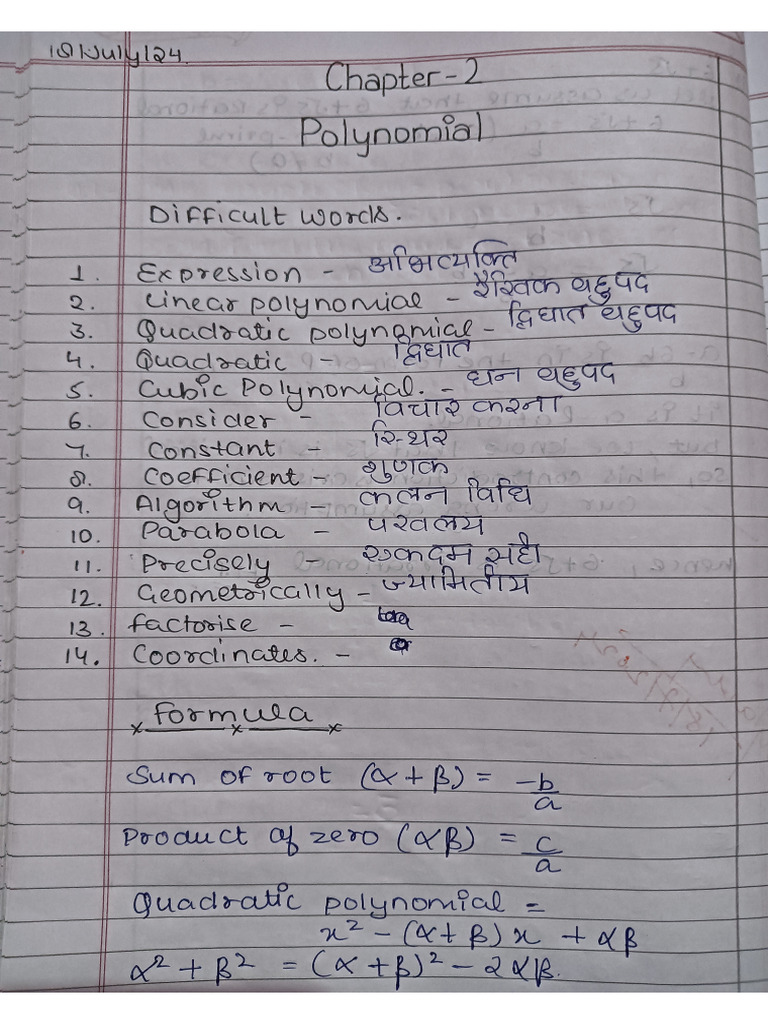 Chapter-2
Polynomial
Difficult Words.
1. Expression - अभिव्यक्ति
2. Linear polynomial - रैखिक बहुपद
3. Quadratic polynomial - द्विघात बहुपद
4. Quadratic - द्विघात
5. Cubic Polynomial. - घन बहुपद
6. Consider - विचार करना
7. Constant - स्थिर
8. Coefficient - गुणक
9. Algorithm - कलन विधि
10. Parabola - परवलय
11. Precisely - एकदम सही
12. Geometrically - ज्यामितीय
13. factorise -
14. Coordinates. -
Formula
Sum of root (α + β) = -b/a
Product of zero (αβ) = c/a
Quadratic polynomial =
x² - (α + β) x + αβ
α² + β² = (α + β)² - 2αβ.